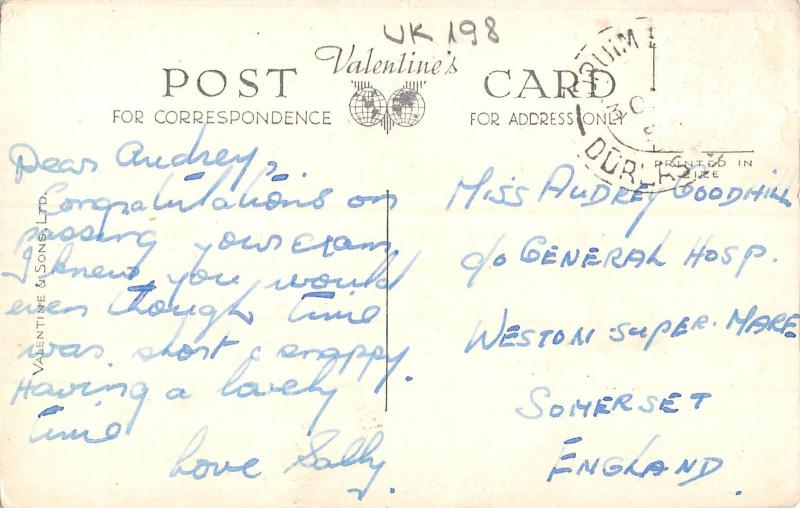 UK 198
Valentine's
POST CARD
FOR CORRESPONDENCE
FOR ADDRESS ONLY
PRINTED IN
EIRE
VALENTINE & SONS, LTD.
Dear Audrey,
Congratulations on
passing your exam,
I knew you would
even though time
was short & snappy.
Having a lovely
time
Love Sally.
MISS AUDREY GOODHILL
c/o GENERAL HOSP.
WESTON-SUPER-MARE
SOMERSET
ENGLAND.